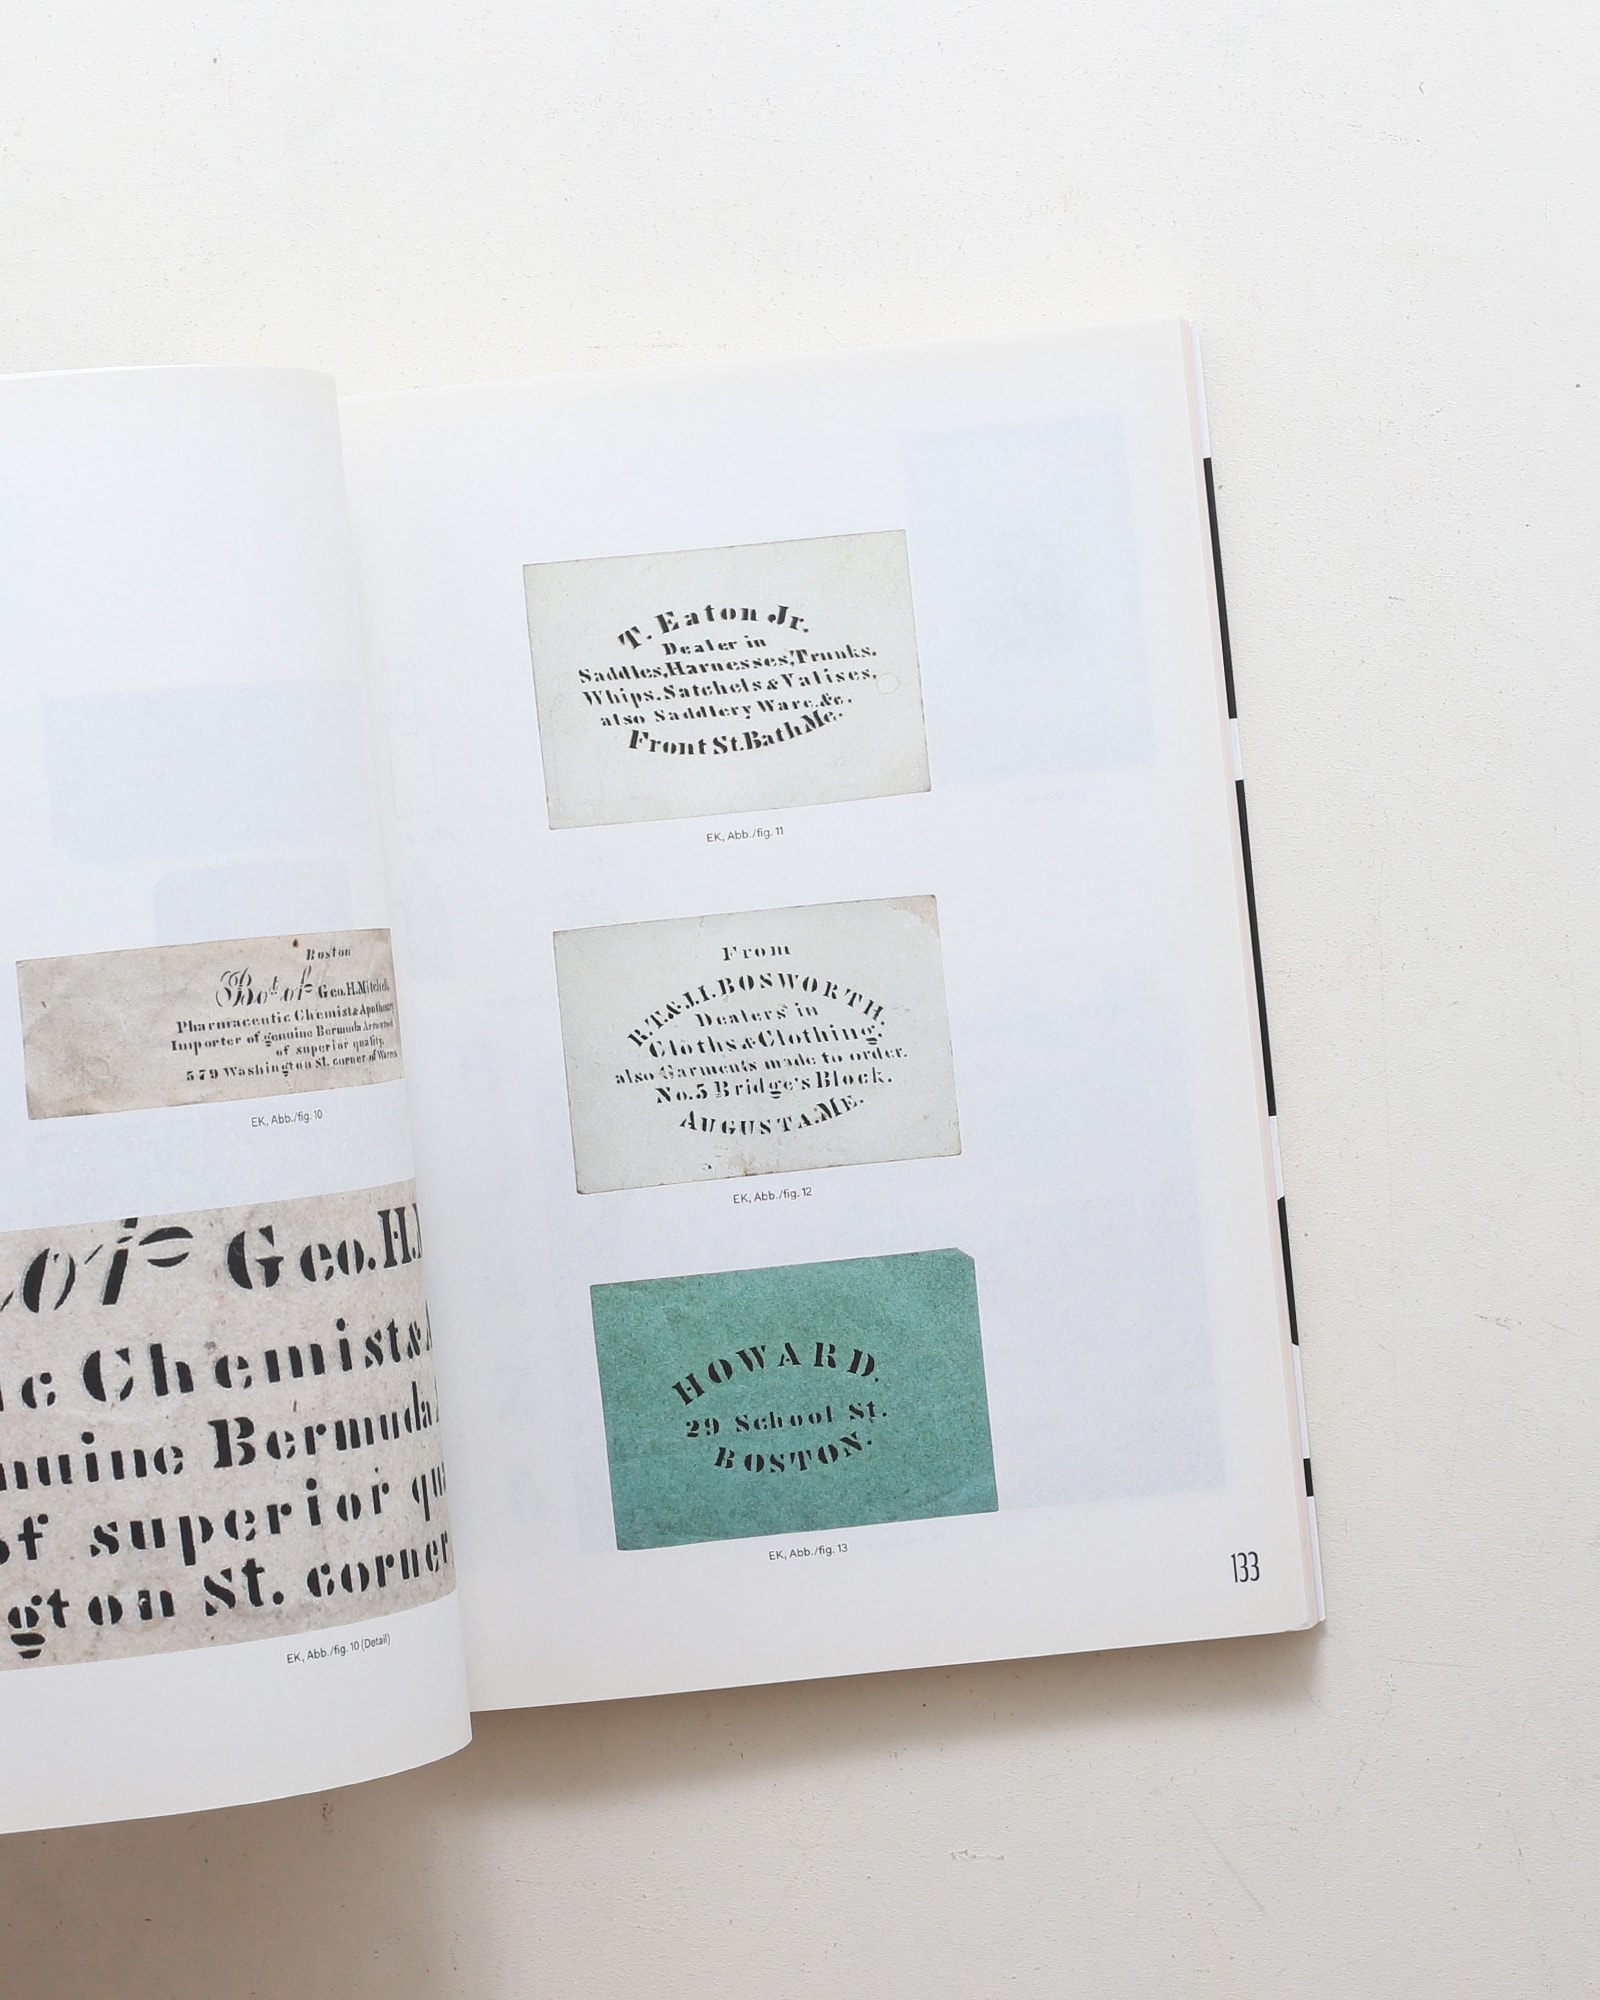 Boston
Bot of Geo.H.Mitchell,
Pharmaceutic Chemist&Apothecary
Importer of genuine Bermuda Arrowroot
of superior quality.
579 Washington St. corner of Warren
EK, Abb./fig. 10
of Geo.H.M
ic Chemist&A
nuine Bermuda
of superior qua
gton St. corner
EK, Abb./fig. 10 (Detail)
T. Eaton Jr.
Dealer in
Saddles,Harnesses,Trunks.
Whips.Satchels&Valises,
also Saddlery Ware.&c.
Front St.Bath Me.
EK, Abb./fig. 11
From
R.T.&J.I.BOSWORTH.
Dealers in
Cloths&Clothing.
also Garments made to order.
No.5 Bridge's Block.
AUGUSTA.ME.
EK, Abb./fig. 12
HOWARD.
29 School St.
BOSTON.
EK, Abb./fig. 13
133